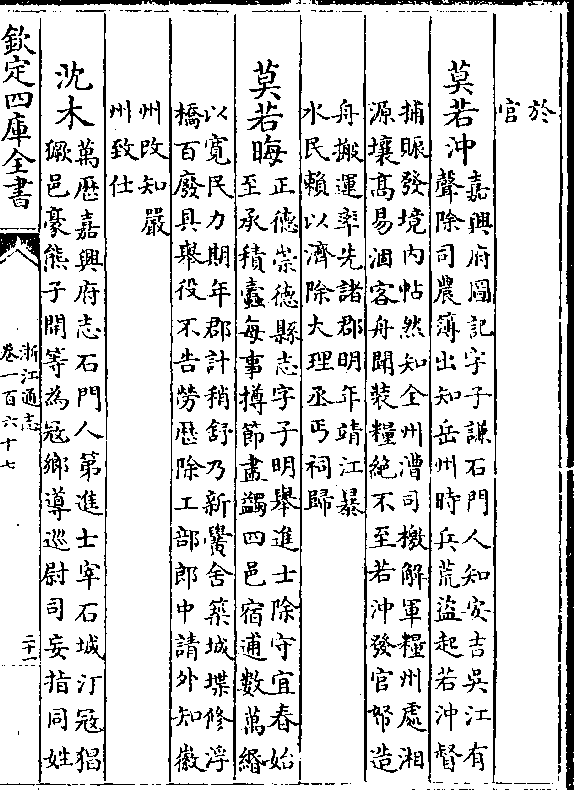 於
官
莫若沖
嘉興府圖記字子謙石門人知安吉吳江有
聲除司農簿出知岳州時兵荒盜起若沖督
捕賑發境內帖然知全州漕司檄解軍糧州處湘
源壤髙易涸客舟聞裝糧絶不至若沖發官帑造
舟搬運率先諸郡明年靖江暴
水民賴以濟除大理丞丐祠歸
莫若晦
正德崇德縣志字子明舉進士除守宜春始
至承積蠹每事撙節盡蠲四邑宿逋數萬緡
以寛民力期年郡計稍舒乃新黌舍築城堞修浮
橋百廢具舉役不告勞歴除工部郎中請外知徽
州改知嚴
州致仕
沈木
萬歴嘉興府志石門人第進士宰石城汀冦猖
獗邑豪熊子開等為冦鄉導巡尉司妄指同姓
欽定四庫全書
浙江通志
卷一百六十七
二十一